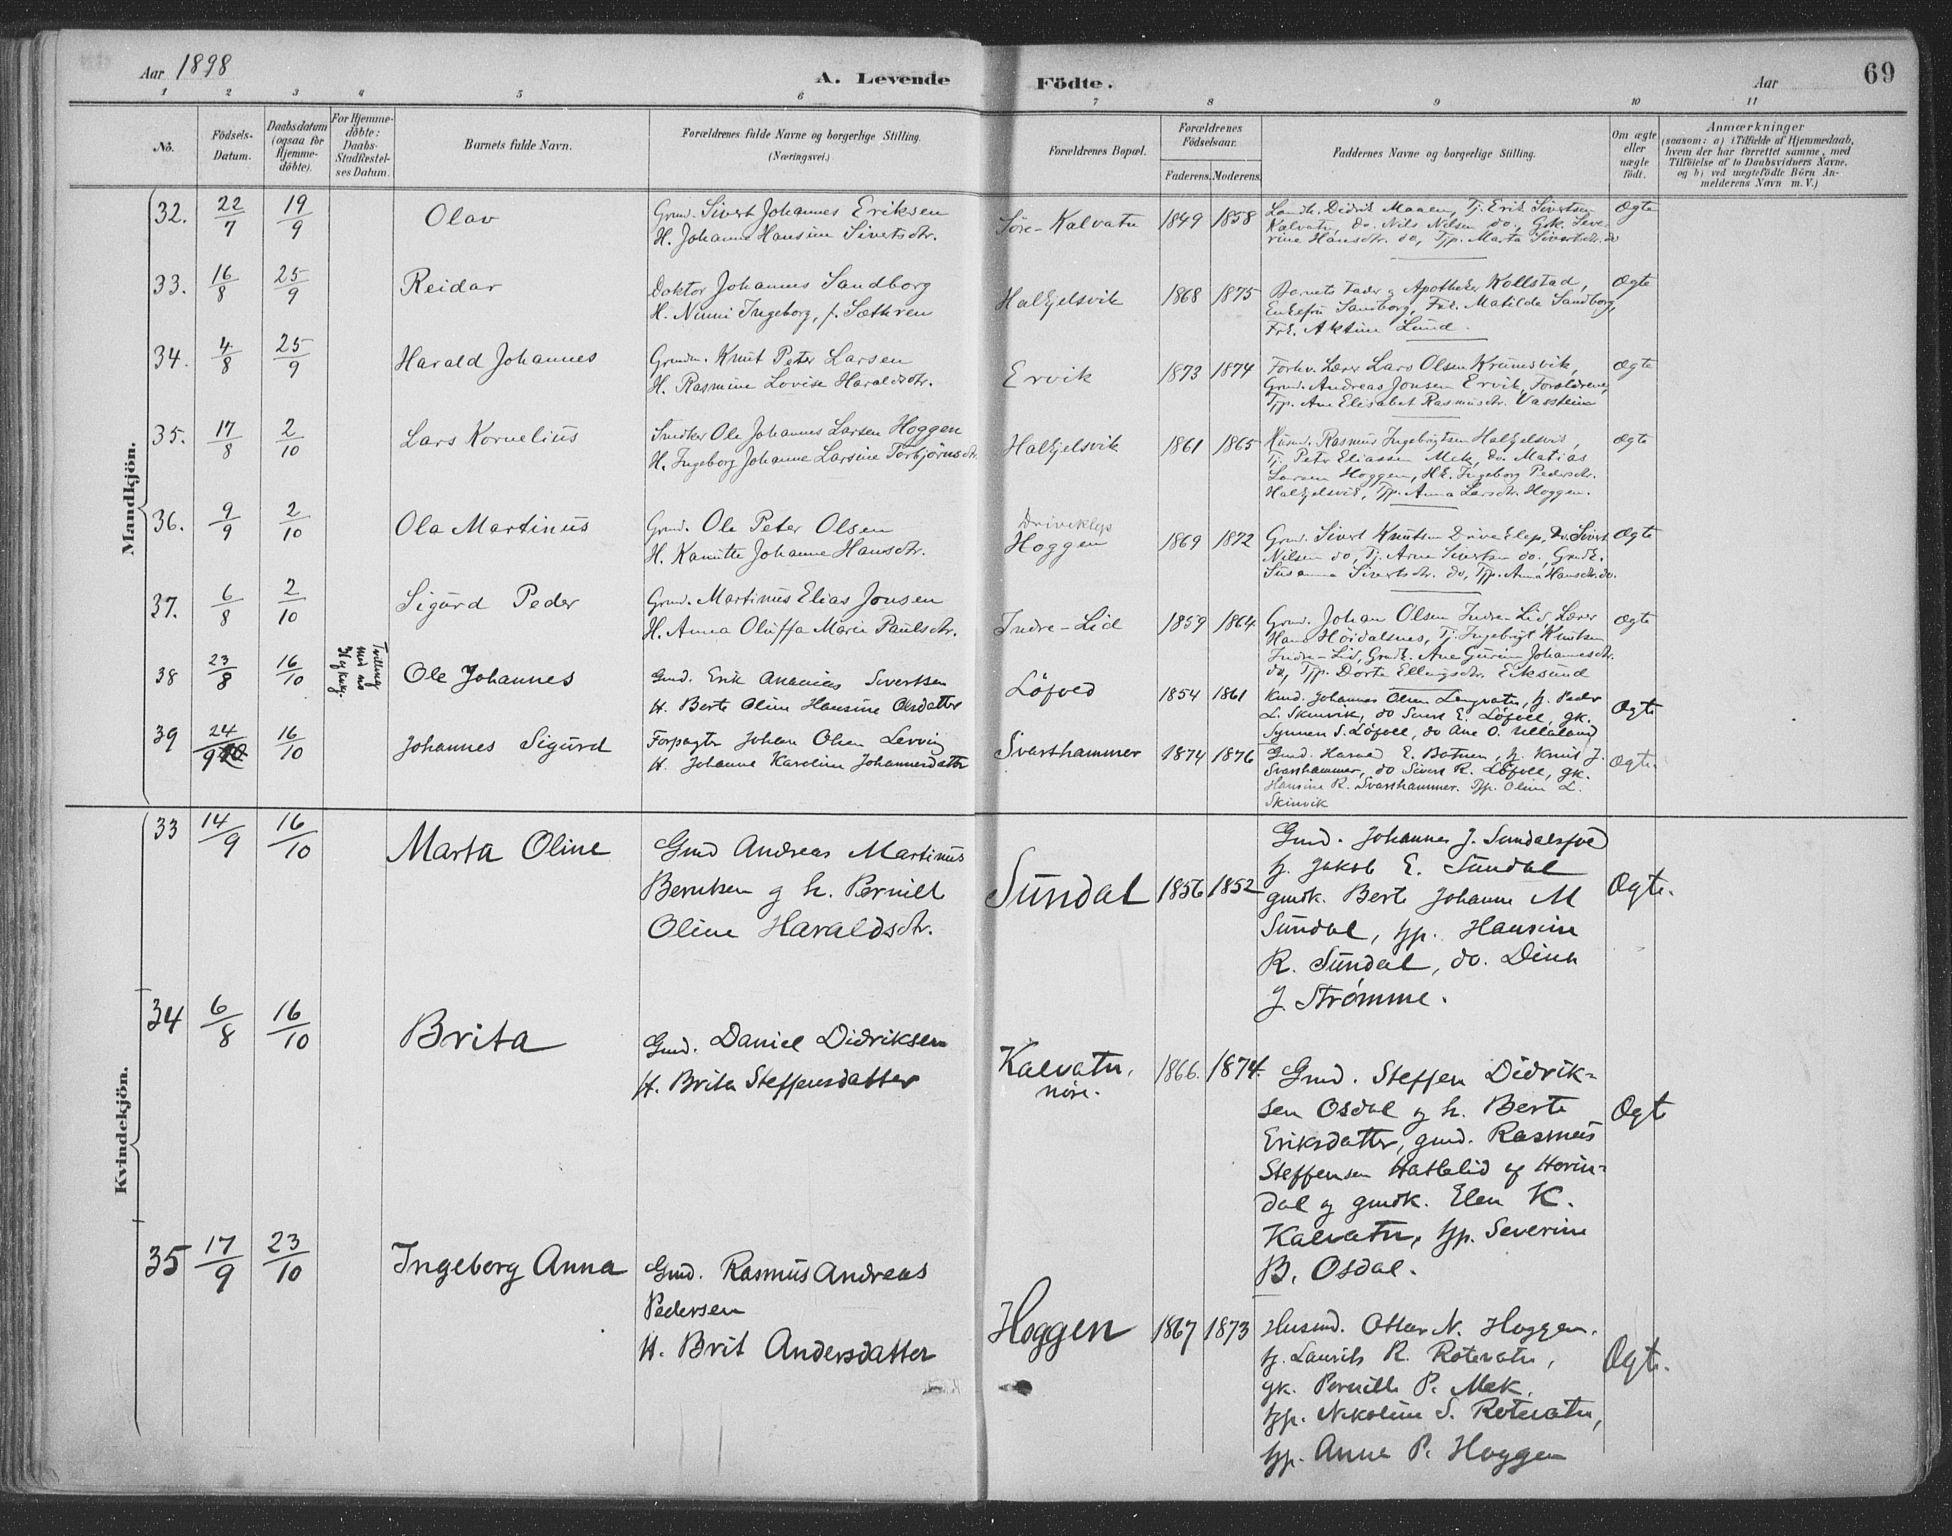 Aar 1898
A. Levende Födte.
Aar
69
1 2 3 4 5 6 7 8 9 10 11
No.
Födsels-Datum.
Daabsdatum (ogsaa for Hjemme-döbte).
For Hjemme-döbte: Daabs-Stadfæstel-ses Datum.
Barnets fulde Navn.
Forældrenes fulde Navne og borgerlige Stilling.
(Næringsvei.)
Forældrenes Bopæl.
Forældrenes Födselsaar.
Faderens. Moderens.
Faddernes Navne og borgerlige Stilling.
Om ægte eller uægte födt.
Anmærkninger
(saasom: a) i Tilfælde af Hjemmedaab,
hvem der har forrettet samme, med
Tilföielse af to Daabsvidners Navne,
og b) ved uægtefödte Börn An-
melderens Navn m. V.)
Mandkjön.
32. 22/7 19/9 Olav
Grmd. Sivert Johannes Eriksen
H. Johanne Hansine Sivertsdtr.
Søre-Kalvatn 1849 1858
Landh. Didrik Maaen, Tj. Erik Sivertsen
Kalvatn, do. Nils Nilsen do, Gk. Seve-
rine Hansdtr. do, Tjp. Marta Sivertsdtr. do
Ægte
33. 16/8 25/9 Reidar
Doktor Johannes Sandborg
H. Ninni Ingeborg, f. Sæthren
Halkjelsvik 1868 1875
Barnets Fader og Apotheker Kollstad,
Enkefru Sandborg, Frk. Matilde Sandborg,
Frk. Aksine Lund.
Ægte
34. 4/8 25/9 Harald Johannes
Grmd. Knut Peter Larsen
H. Rasmine Lovise Haraldsdtr.
Ervik 1873 1874
Forhv. Lærer Lars Olsen Krumsvik,
Grmd. Andreas Jonsen Ervik, Forældrene,
Tjp. Ane Elisabet Rasmusdtr. Vasstein
Ægte
35. 17/8 2/10 Lars Kornelius
Snedker Ole Johannes Larsen Hoggen
H. Ingeborg Johanne Larsine Torbjørnsdtr.
Halkjelsvik 1861 1865
Husmd. Rasmus Ingebrigtsen Halkjelsvik,
Tj. Petr Eliassen Mek, do. Matias
Larsen Hoggen, Hk. Ingeborg Pedersdtr.
Halkjelsvik, Tjp. Anna Larsdtr. Hoggen.
Ægte
36. 9/9 2/10 Ola Martinus
Grmd. Ole Peter Olsen
H. Kamitte Johanne Hansdtr.
Driveklep
Hoggen 1869 1872
Grmd. Sivert Knutsen Driveklep, Do. Sivert
Nilsen do, Tj. Arne Sivertsen do, Grmdk.
Susanna Sivertsdtr. do, Tjp. Anna Hansdtr. do.
Ægte
37. 6/8 2/10 Sigurd Peder
Grmd. Martinus Elias Jonsen
H. Anna Oluffa Marie Paulsdtr.
Indre-Lid 1859 1864
Grmd. Johan Olsen Indre-Lid, Lærer
Hans Höidalsnes, Tj. Ingebrigt Knutsen
Indre-Lid, Grmdk. Ane Gurine Johannesdtr.
do, Tjp. Dorte Ellingsdtr. Eiksund
Ægte
38 23/8 16/10 Tvilling med no Ole Johannes
Gmd. Erik Ananias Sivertsen
H. Berte Oline Hansine Olsdatter
Löfoed 1854 1861
Kmd. Johannes Olsen Lengvatn, tj. Peder
L. Skinvik, do Sivert E. Löfoll, gk.
Synnev S. Löfoll, do Ane O. Ullaland
Ægte
39 24/9 16/10 Johannes Sigurd
Forpagter Johan Olsen Levvig
H. Johanne Karoline Johannesdatter
Svarthammer 1874 1876
Gmd. Harald E. Botnen, tj. Knut J.
Svarthammer, do Sivert R. Löfoll, gk.
Hansine R. Svarthammer. Tjp. Oline L.
Skinvik
Ægte.
Kvindekjön.
33 14/9 16/10 Marta Oline
Gmd Andreas Martinus
Berntsen og h. Pernille
Oline Haraldsdtr.
Sundal 1856 1852
Gmd. Johannes J. Sundalsfoed
tj. Jakob E. Sundal
gmdk. Berte Johanne M
Sundal, tjp. Hansine
R. Sundal, do. Dina
J. Strømme.
Ægte.
34 6/8 16/10 Brita
Gmd. Daniel Didriksen
H. Brita Steffensdatter
Kalvatn,
nøre. 1866. 1874.
Gmd. Steffen Didrik-
sen Osdal og h. Berte
Eriksdatter, gmd. Rasmus
Steffensen Hatlelid af Horin-
dal og gmdk. Elen K.
Kalvatn, tjp. Severine
B. Osdal.
Ægte
35 17/9 23/10 Ingeborg Anna
Gmd. Rasmus Andreas
Pedersen
H. Brit Andersdatter
Hoggen 1867 1873
Husmd. Ottar N. Hoggen.
tj. Laurits R. Rotevatn,
gk. Pernille P. Mek.
tjp. Nikoline S. Rotevatn,
tjp. Anne P. Hoggen
Ægte.